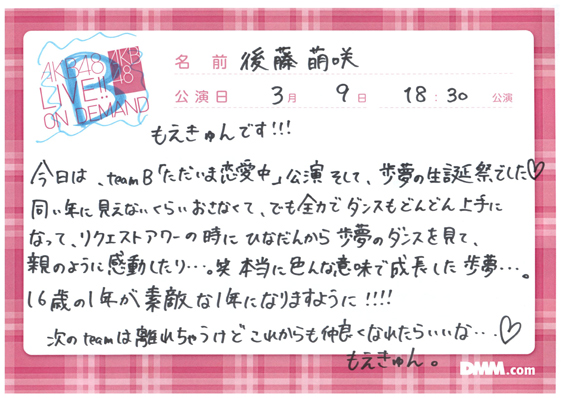 AKB48
LIVE!!
ON DEMAND
AKB
48
B
名前 後藤萌咲
公演日 3月 9日 18:30 公演
もえきゅんです!!!
今日は、teamB「ただいま恋愛中」公演そして、歩夢の生誕祭でした♡
同い年に見えないくらいおさなくて、でも全力でダンスもどんどん上手に
なって、リクエストアワーの時にひなだんから歩夢のダンスを見て、
親のように感動したり…。笑 本当に色んな意味で成長した歩夢…。
16歳の1年が素敵な1年になりますように!!!!
次のteamは離れちゃうけどこれからも仲良くなれたらいいな…♡
もえきゅん。
DMM.com